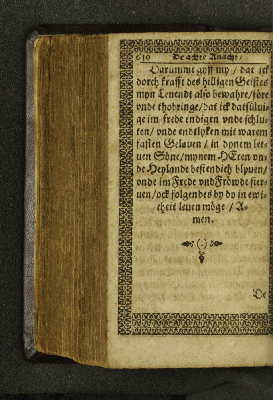 630 De achte Andacht /
Darumme gyff my / dat ick
dorch krafft des hilligen Geistes
myn Leuendt also bewahre / före
vnde thobringe / dat ick datsüluige
im frede endigen vnde schluten
/ vnde endtlyken mit warem
fasten Gelöuen / in dynem leuen
Söne / mynem HEren vnde
Heylande bestendich blyuen /
vnde im Frede vnd Fröwde steruen
/ ock folgendes by dy in ewicheit
leuen möge / Amen.
De